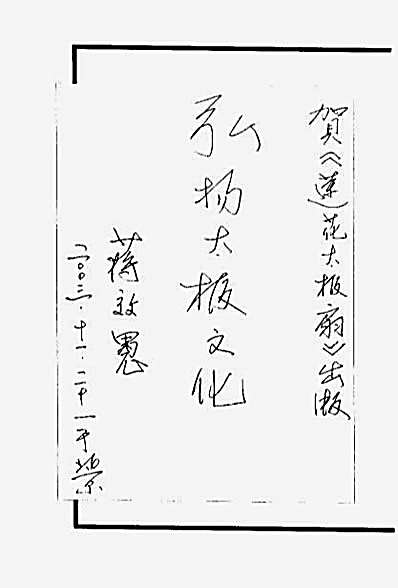 賀《莲花太极扇》出版
弘扬太极文化
蒋效愚
二〇〇三.十一.二十一于北京